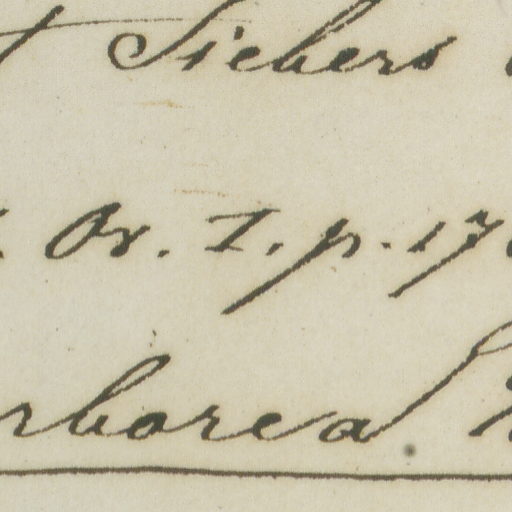 Siebers
Or. I. p. 17
rborea